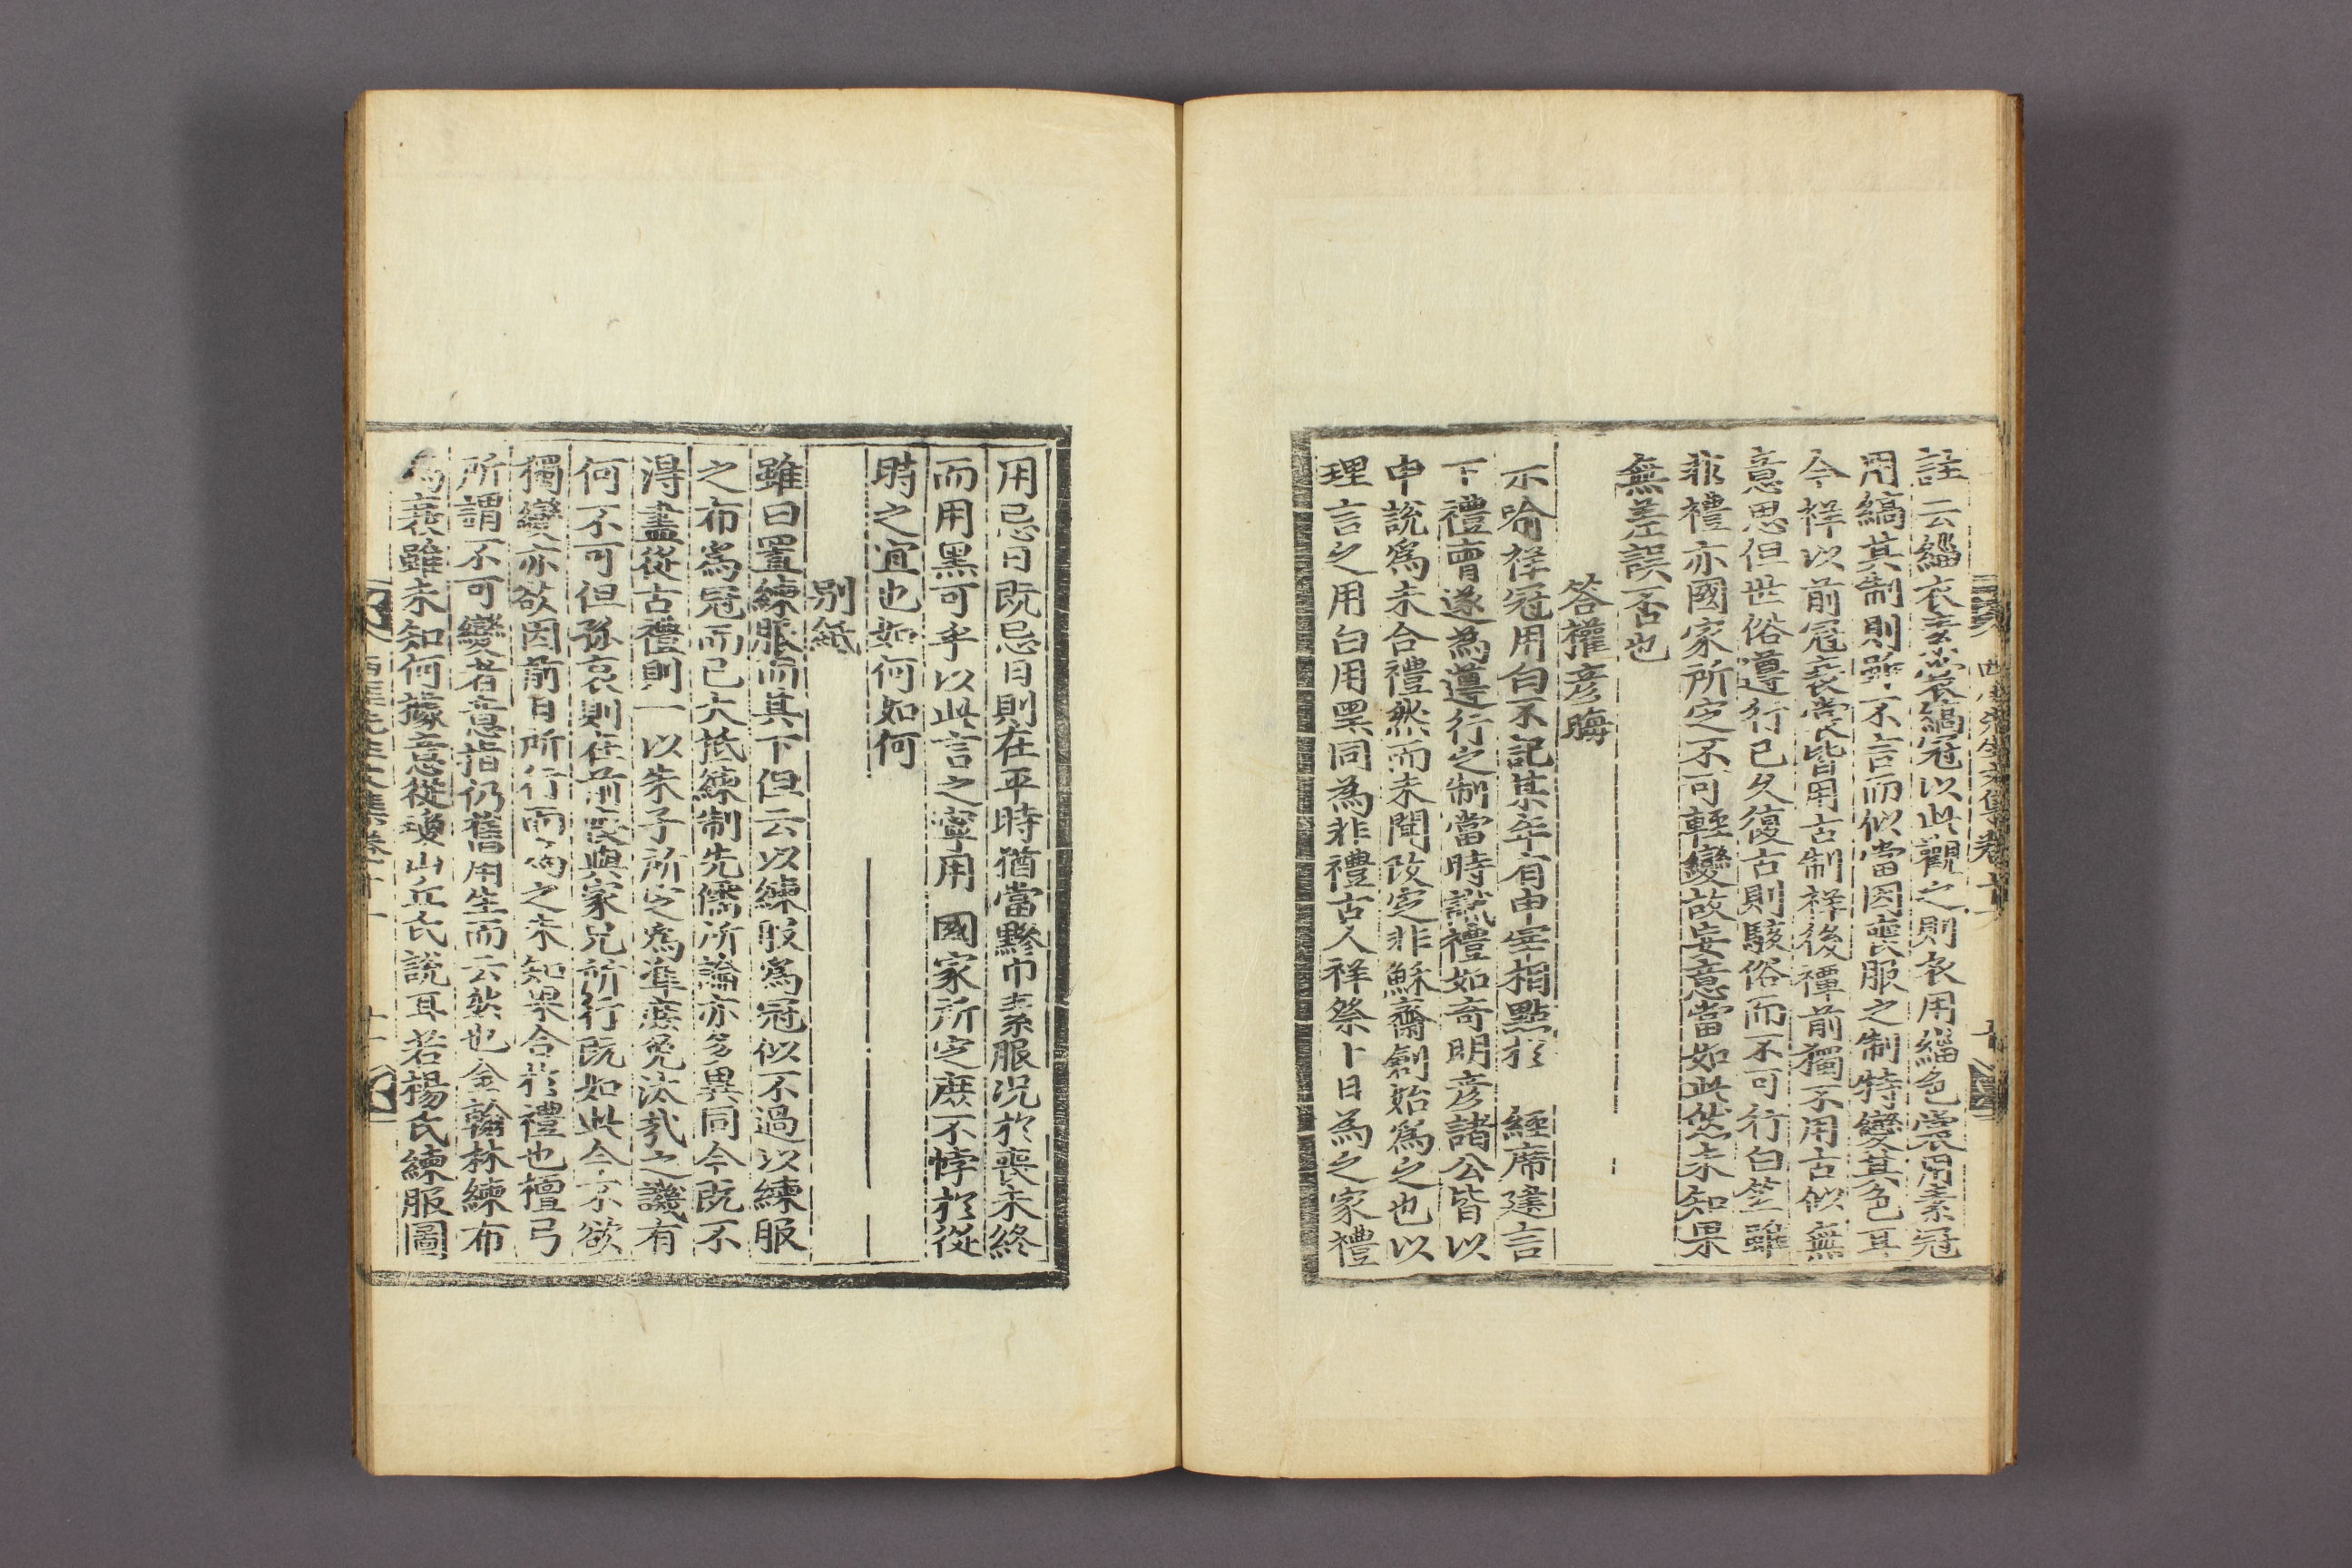 註云緇衣素裳縞冠以此觀之則衣用緇色裳用素冠
用縞其制則雖不言而似當因喪服之制特變其色耳
今祥以前冠衰裳皆用古制祥後禫前獨不用古似無
意思但世俗遵行已久復古則駭俗而不可行白笠雖
非禮亦國家所定不可輕變故妄意當如此然未知果
無差誤否也
答權彦晦
示喩祥冠用白不記某年有申宰相點於 經席建言
下禮曹遂為遵行之制當時識禮如奇明彦諸公皆以
申說爲未合禮然而未聞改定非穌齋創始爲之也以
理言之用白用黑同為非禮古人祥祭卜日為之家禮
用忌日旣忌日則在平時猶當黲巾素服况於喪未終
而用黑可乎以此言之寧用 國家所定庶不悖於從
時之宜也如何如何
別紙
雖曰置練服而其下但云以練服爲冠似不過以練服
之布爲冠而已大抵練制先儒所論亦多異同今旣不
得盡從古禮則一以朱子所定爲準庶免汰哉之譏有
何不可但孫哀則在前喪與家兄所行旣如此今不欲
獨變亦欲因前日所行而爲之未知果合於禮也檀弓
所謂不可變者意指仍舊用生而云然也金翰林練布
爲衰雖未知何據意從瓊山丘氏說耳若楊氏練服圖
西厓先生文集卷十一